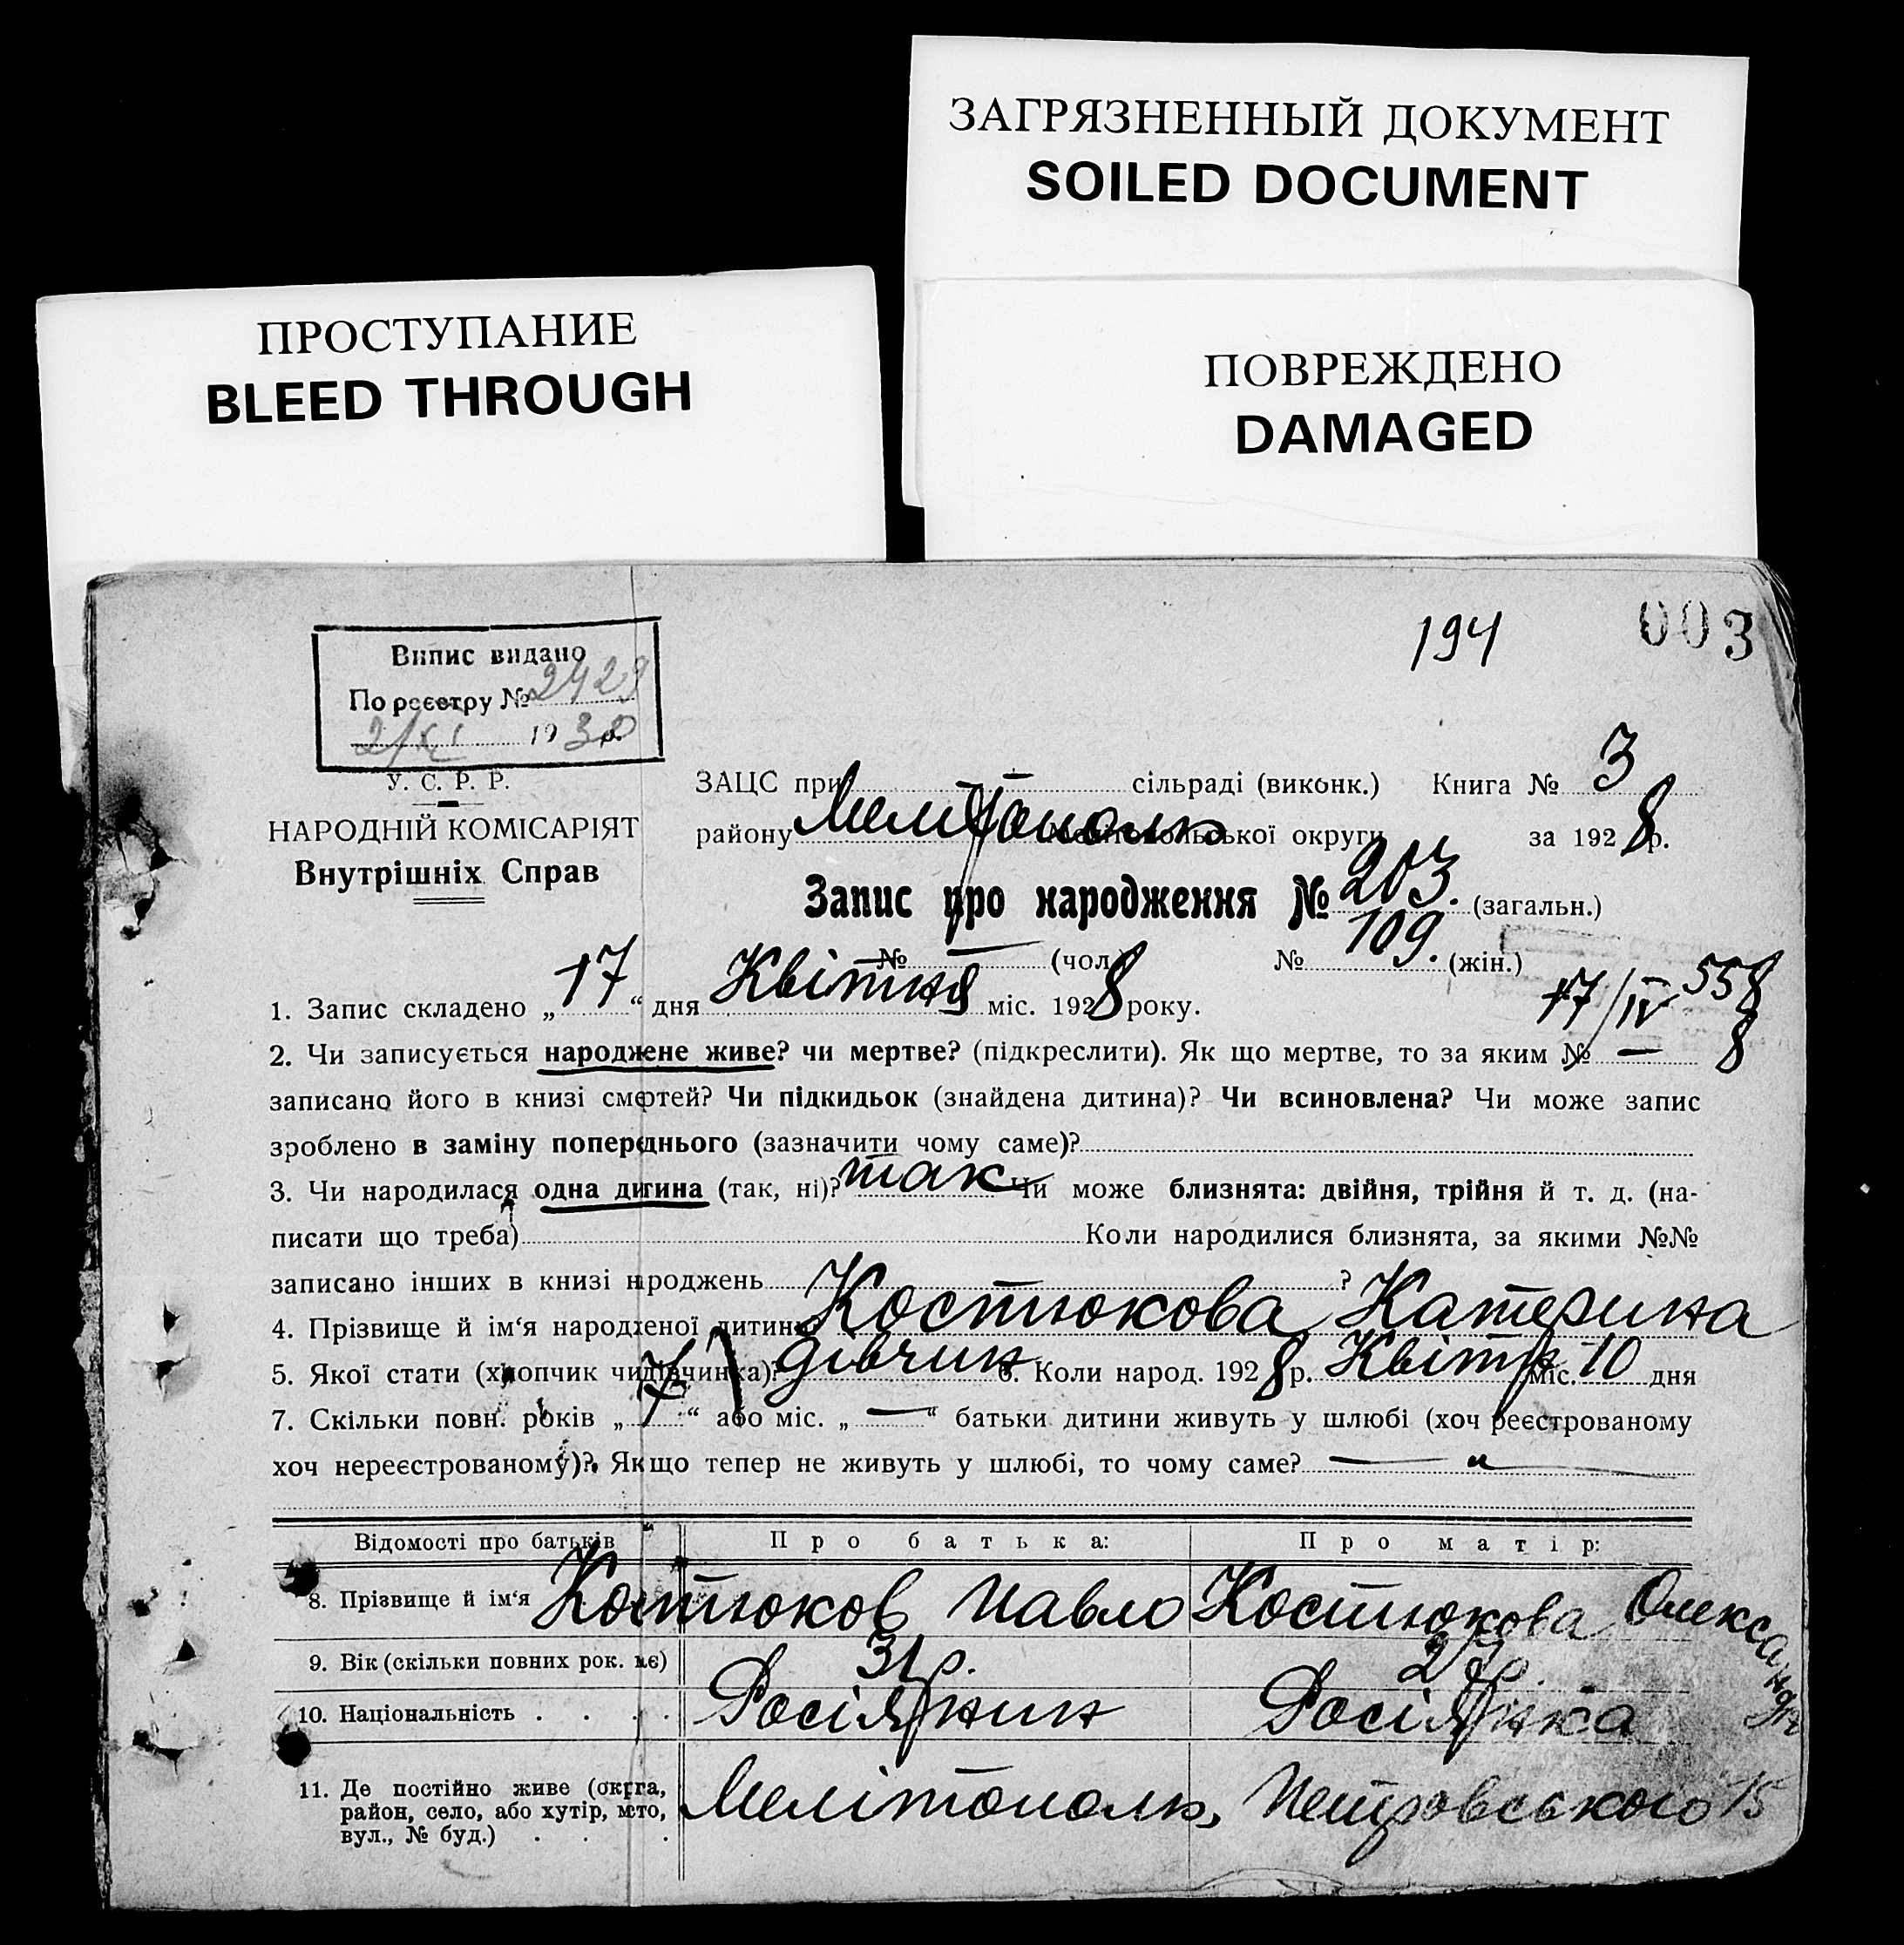 ЗАГРЯЗНЕННЫЙ ДОКУМЕНТ
SOILED DOCUMENT
ПРОСТУПАНИЕ
BLEED THROUGH
ПОВРЕЖДЕНО
DAMAGED
194 003
Випис видано
По реєстру № 2429
2/XI 1930 р.
У. С. Р. Р.
НАРОДНІЙ КОМІСАРІЯТ
Внутрішніх Справ
ЗАЦС при сільраді (виконк.) Книга № 3
району Мелітополь Мелітопольської округи за 1928 р.
Запис про народження № 203. (загальн.)
№ — (чол.) № 109. (жін.)
1. Запис складено „17“ дня Квітня міс. 1928 року. 17/IV 558
8
2. Чи записується народжене живе? чи мертве? (підкреслити). Як що мертве, то за яким № —
записано його в книзі смертей? Чи підкидьок (знайдена дитина)? Чи всиновлена? Чи може запис
зроблено в заміну попереднього (зазначити чому саме)?
3. Чи народилася одна дитина (так, ні)? так Чи може близнята: двійня, трійня й т. д. (на-
писати що треба) Коли народилися близнята, за якими №№
записано інших в книзі народжень ?
4. Прізвище й ім‘я народженої дитини Костюкова Катерина
5. Якої стати (хлопчик чи дівчинка)? дівчин 6. Коли народ. 1928 р. Квітн міс. 10 дня
7. Скільки повн. років „7“ або міс. „—“ батьки дитини живуть у шлюбі (хоч реєстрованому
хоч нереєстрованому)? Якщо тепер не живуть у шлюбі, то чому саме? — „ —
Відомості про батьків Про батька: Про матір:
8. Прізвище й ім‘я Костюков Павло Костюкова Олександра
9. Вік (скільки повних рок. має) 31 р.
10. Національність . . . . Росіянин Росіянка
11. Де постійно живе (округа,
район, село, або хутір, місто,
вул., № буд.) . . . Мелітополь, Петровського 15